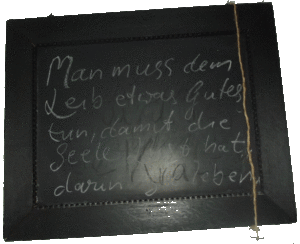 Man muss dem
Leib etwas Gutes
tun, damit die
Seele Lust hat,
darin zu leben